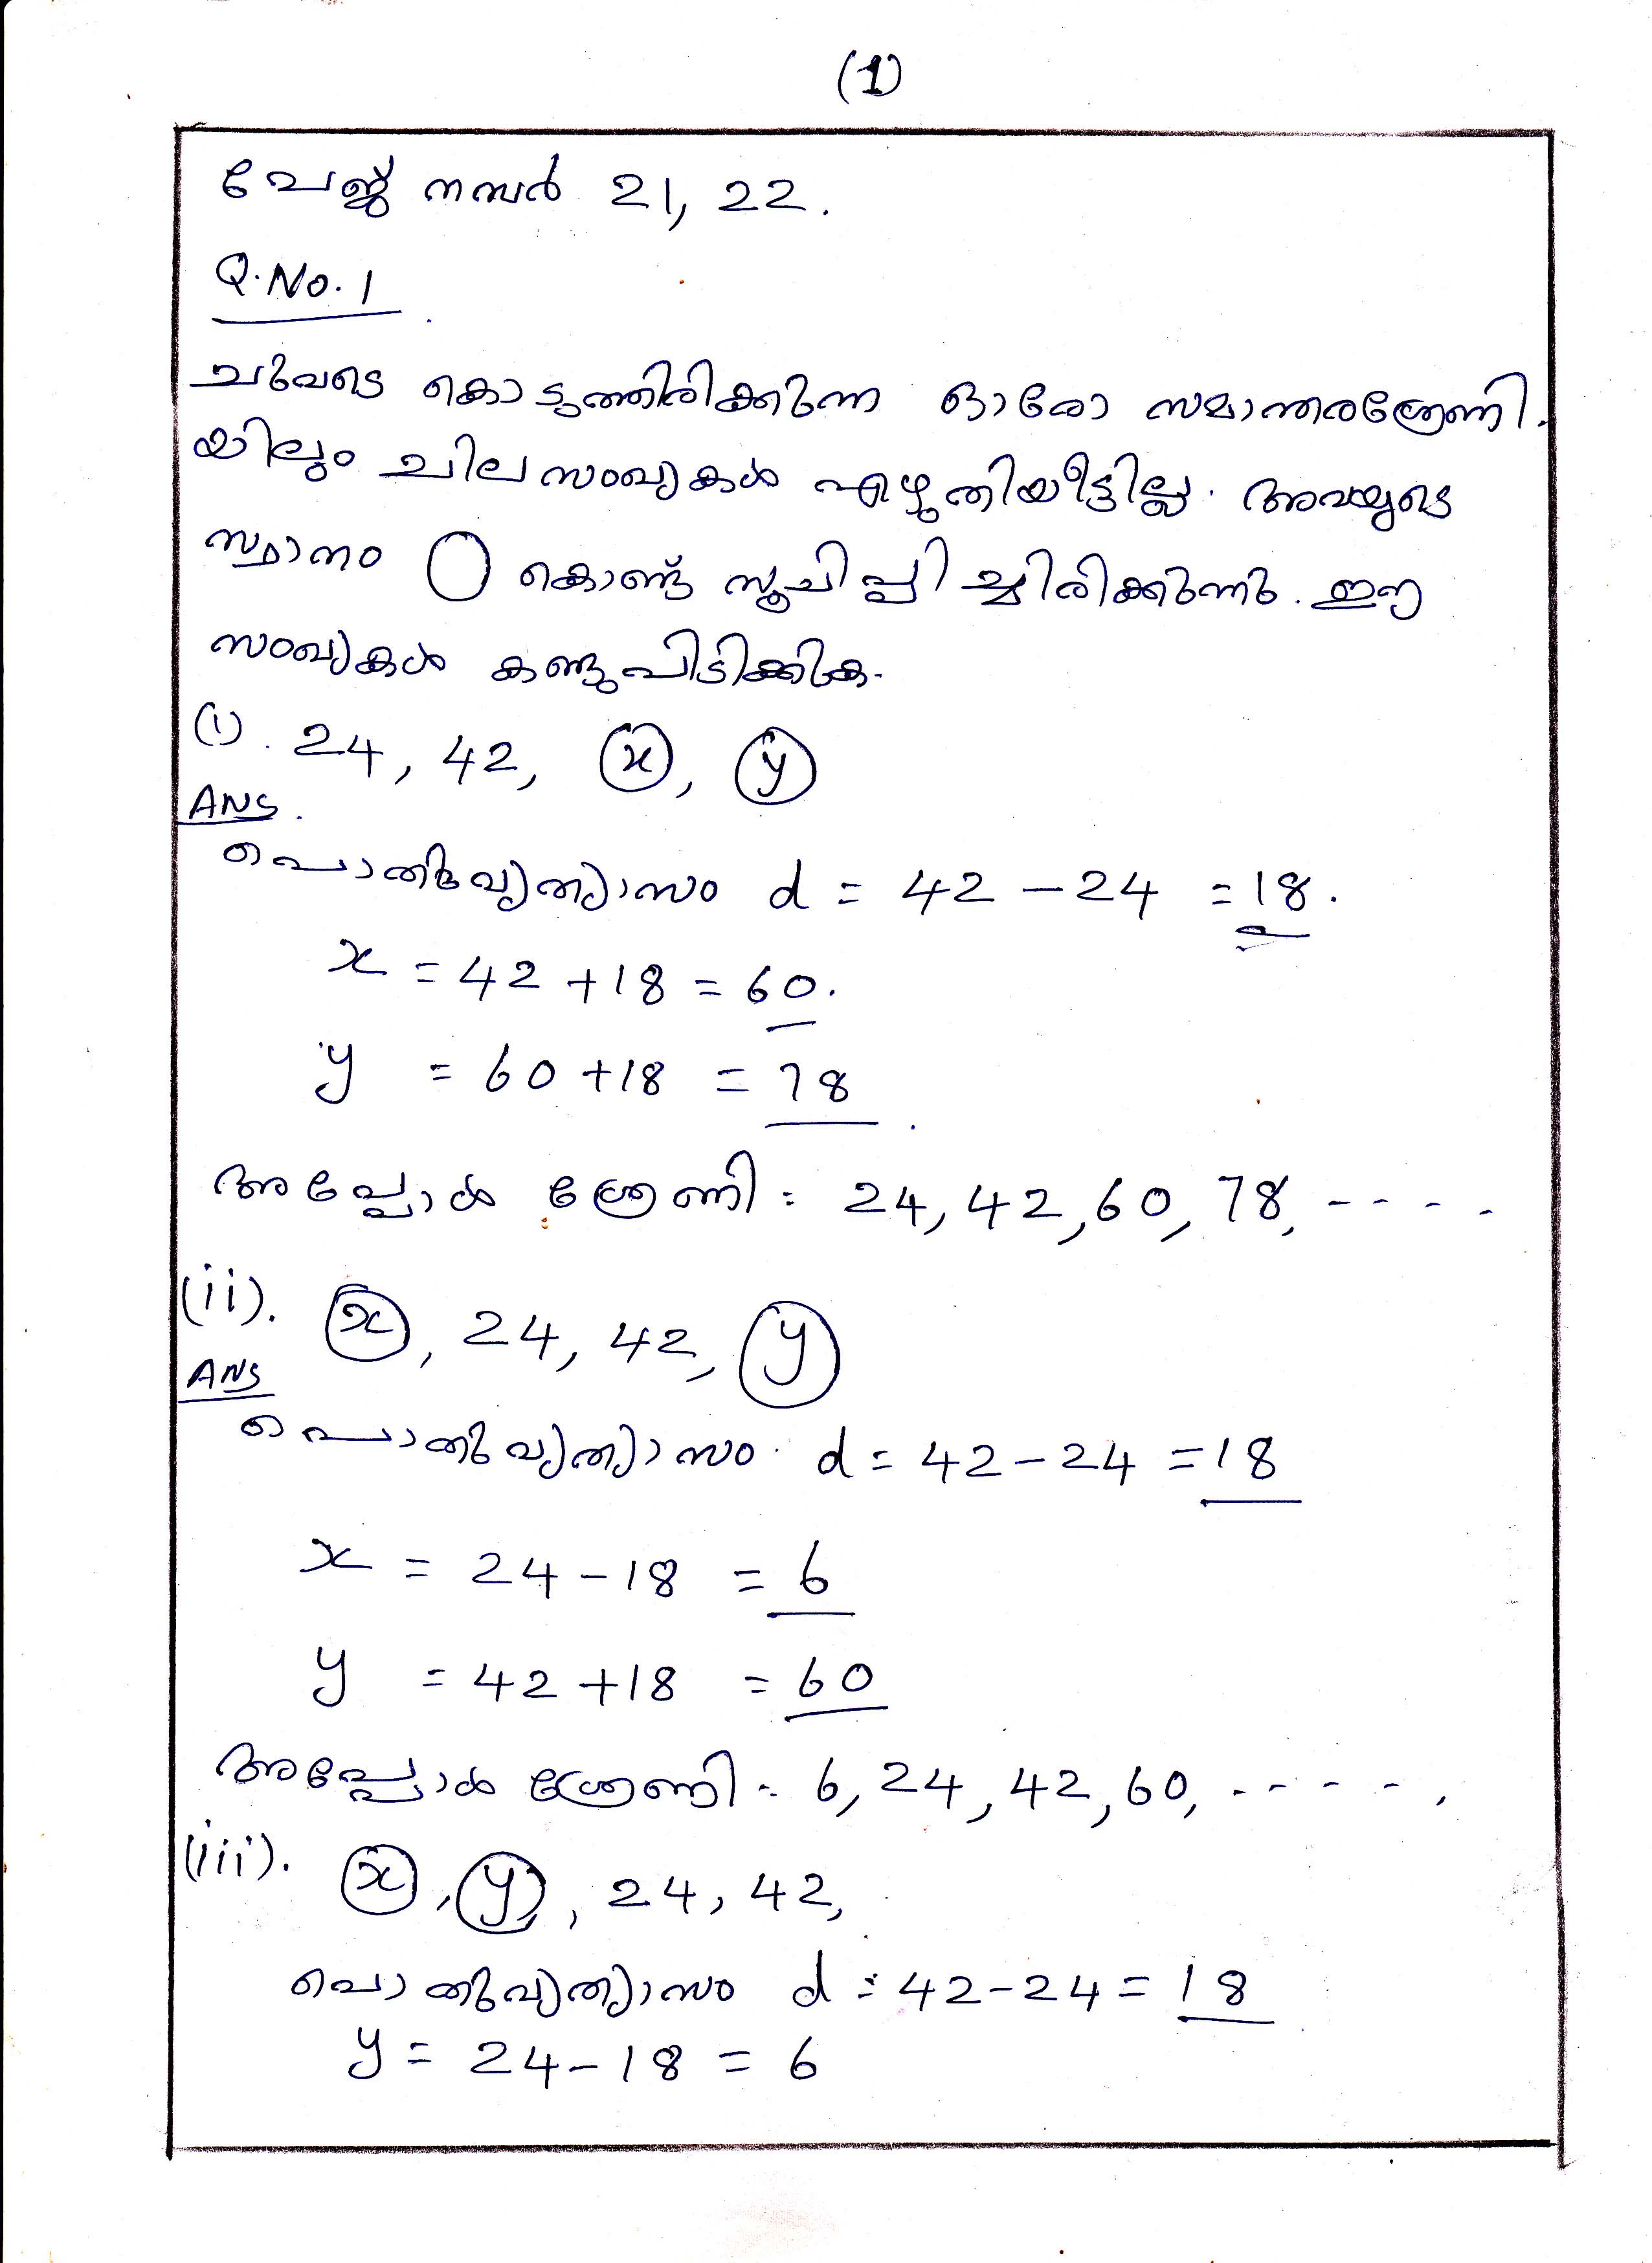 (1)
പേജ് നമ്പർ 21, 22.
Q.No. 1
ചുവടെ കൊടുത്തിരിക്കുന്ന ഓരോ സമാന്തരശ്രേണി-
യിലും ചില സംഖ്യകൾ എഴുതിയിട്ടില്ല. അവയുടെ
സ്ഥാനം ◯ കൊണ്ട് സൂചിപ്പിച്ചിരിക്കുന്നു. ഈ
സംഖ്യകൾ കണ്ടുപിടിക്കുക.
(i). 24, 42, (x), (y)
ANS.
പൊതുവ്യത്യാസം d = 42 - 24 = 18.
x = 42 + 18 = 60.
y = 60 + 18 = 78
അപ്പോൾ ശ്രേണി : 24, 42, 60, 78, - - - -
(ii). (x), 24, 42, (y)
ANS
പൊതുവ്യത്യാസം d = 42 - 24 = 18
x = 24 - 18 = 6
y = 42 + 18 = 60
അപ്പോൾ ശ്രേണി : 6, 24, 42, 60, - - - - ,
(iii). (x), (y), 24, 42,
പൊതുവ്യത്യാസം d = 42 - 24 = 18
y = 24 - 18 = 6